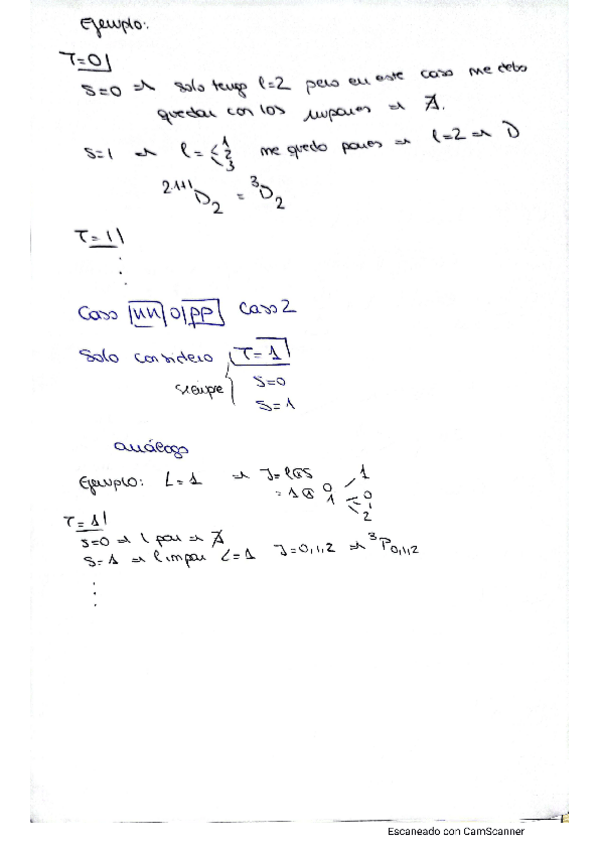 Ejemplo:
T=0
S=0 ⇒ solo tengo l=2 pero en este caso me debo
quedar con los impares ⇒ ∄.
S=1 ⇒ l= 1 2 3 me quedo pares ⇒ l=2 ⇒ D
2·1+1D2 = 3D2
T=1
⋮
Caso nn o pp Caso 2
Solo considero T=1
siempre S=0
S=1
análogo
Ejemplo: L=1 ⇒ J=l⊗S
= 1⊗ 0 1 1 0 1 2
T=1
S=0 ⇒ l par ⇒ ∄
S=1 ⇒ l impar L=1 J=0,1,2 ⇒ 3P0,1,2
⋮
Escaneado con CamScanner